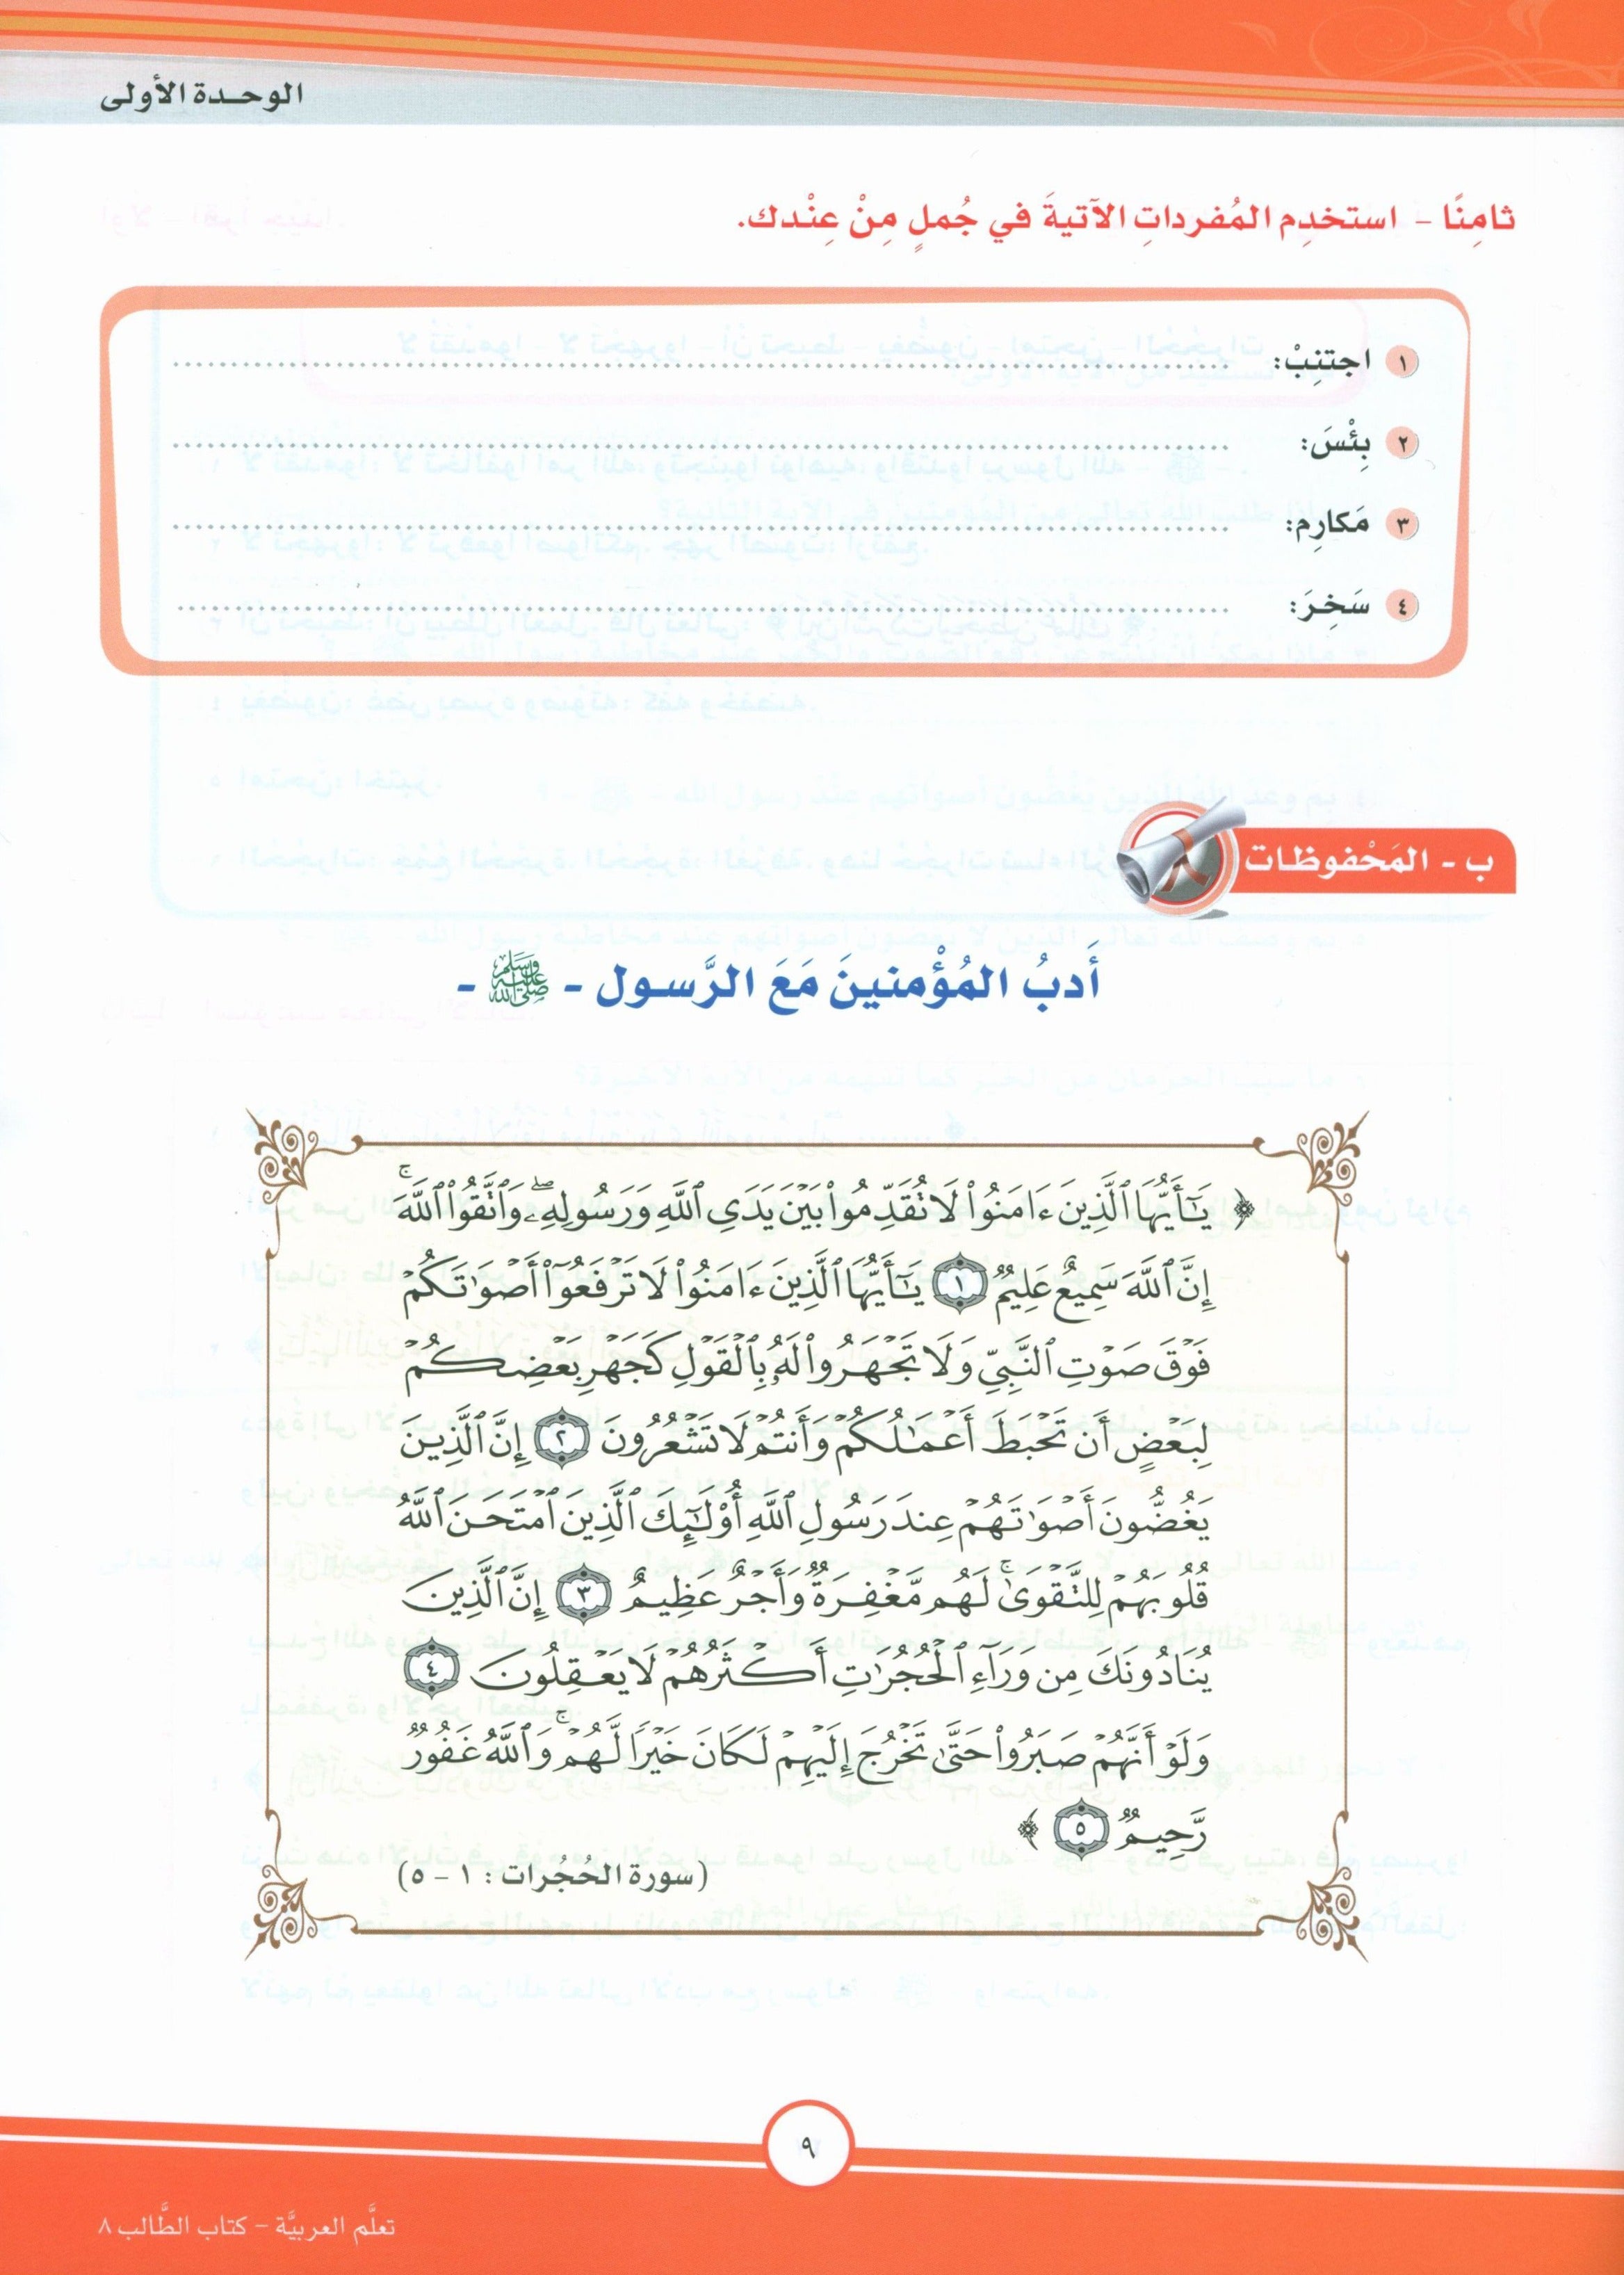 الوحدة الأولى
ثامِنًا - استخدِم المُفرداتِ الآتيةَ في جُملٍ مِنْ عِنْدك.
١ اجتنِبْ: ........................................
٢ بِئْسَ: ........................................
٣ مَكارِم: ........................................
٤ سَخِرَ: ........................................
ب - المَحْفوظات
أَدبُ المُؤْمنينَ مَعَ الرَّسول - ﷺ -
﴿ يَٰٓأَيُّهَا ٱلَّذِينَ ءَامَنُوا۟ لَا تُقَدِّمُوا۟ بَيْنَ يَدَىِ ٱللَّهِ وَرَسُولِهِۦ ۖ وَٱتَّقُوا۟ ٱللَّهَ ۚ
إِنَّ ٱللَّهَ سَمِيعٌ عَلِيمٌ ١ يَٰٓأَيُّهَا ٱلَّذِينَ ءَامَنُوا۟ لَا تَرْفَعُوٓا۟ أَصْوَٰتَكُمْ
فَوْقَ صَوْتِ ٱلنَّبِىِّ وَلَا تَجْهَرُوا۟ لَهُۥ بِٱلْقَوْلِ كَجَهْرِ بَعْضِكُمْ
لِبَعْضٍ أَن تَحْبَطَ أَعْمَٰلُكُمْ وَأَنتُمْ لَا تَشْعُرُونَ ٢ إِنَّ ٱلَّذِينَ
يَغُضُّونَ أَصْوَٰتَهُمْ عِندَ رَسُولِ ٱللَّهِ أُو۟لَٰٓئِكَ ٱلَّذِينَ ٱمْتَحَنَ ٱللَّهُ
قُلُوبَهُمْ لِلتَّقْوَىٰ ۚ لَهُم مَّغْفِرَةٌ وَأَجْرٌ عَظِيمٌ ٣ إِنَّ ٱلَّذِينَ
يُنَادُونَكَ مِن وَرَآءِ ٱلْحُجُرَٰتِ أَكْثَرُهُمْ لَا يَعْقِلُونَ ٤
وَلَوْ أَنَّهُمْ صَبَرُوا۟ حَتَّىٰ تَخْرُجَ إِلَيْهِمْ لَكَانَ خَيْرًا لَّهُمْ ۚ وَٱللَّهُ غَفُورٌ
رَّحِيمٌ ٥ ﴾
(سورة الحُجُرات: ١ - ٥)
٩
تعلَّم العربيَّة - كتاب الطَّالب ٨